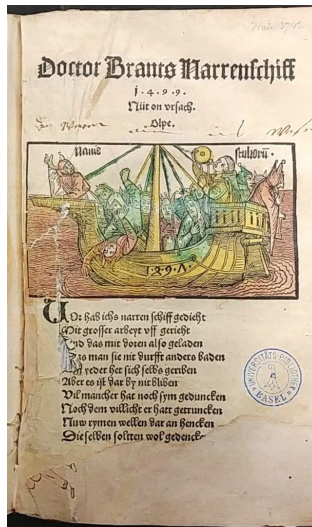 Doctor Brants Narrenschiff
1.4.9.9.
Nüt on vrsach.
Olpe.
Nauis stultorū.
VOr hab ichs narren schiff gedicht
Mit grosser arbeyt vff gericht
Vnd das mit doren also geladen
Das man sie nit durfft anders baden
yeder het sich selbs geriben
Aber es ist dar by nit bliben
Vil mancher hat noch sym geduncken
Noch dem villicht er hatt getruncken
Nuw rymen wellen dar an hencken
Die selben soltten wol gedencke
UNIVERSITÄTS-BIBLIOTHEK
BASEL